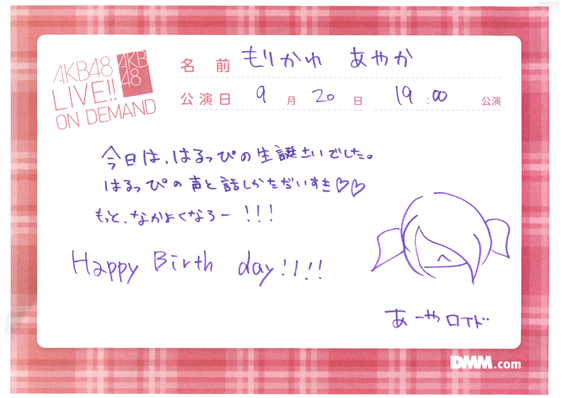 AKB48
LIVE!!
ON DEMAND
AKB
48
名 前 もりかわ あやか
公演日 9 月 20 日 19:00 公演
今日は、はるっぴの生誕さいでした。
はるっぴの声と話しかただいすき♡♡
もっと、なかよくなろー!!!
Happy Birth day!!!!
あーやロイド
DMM.com